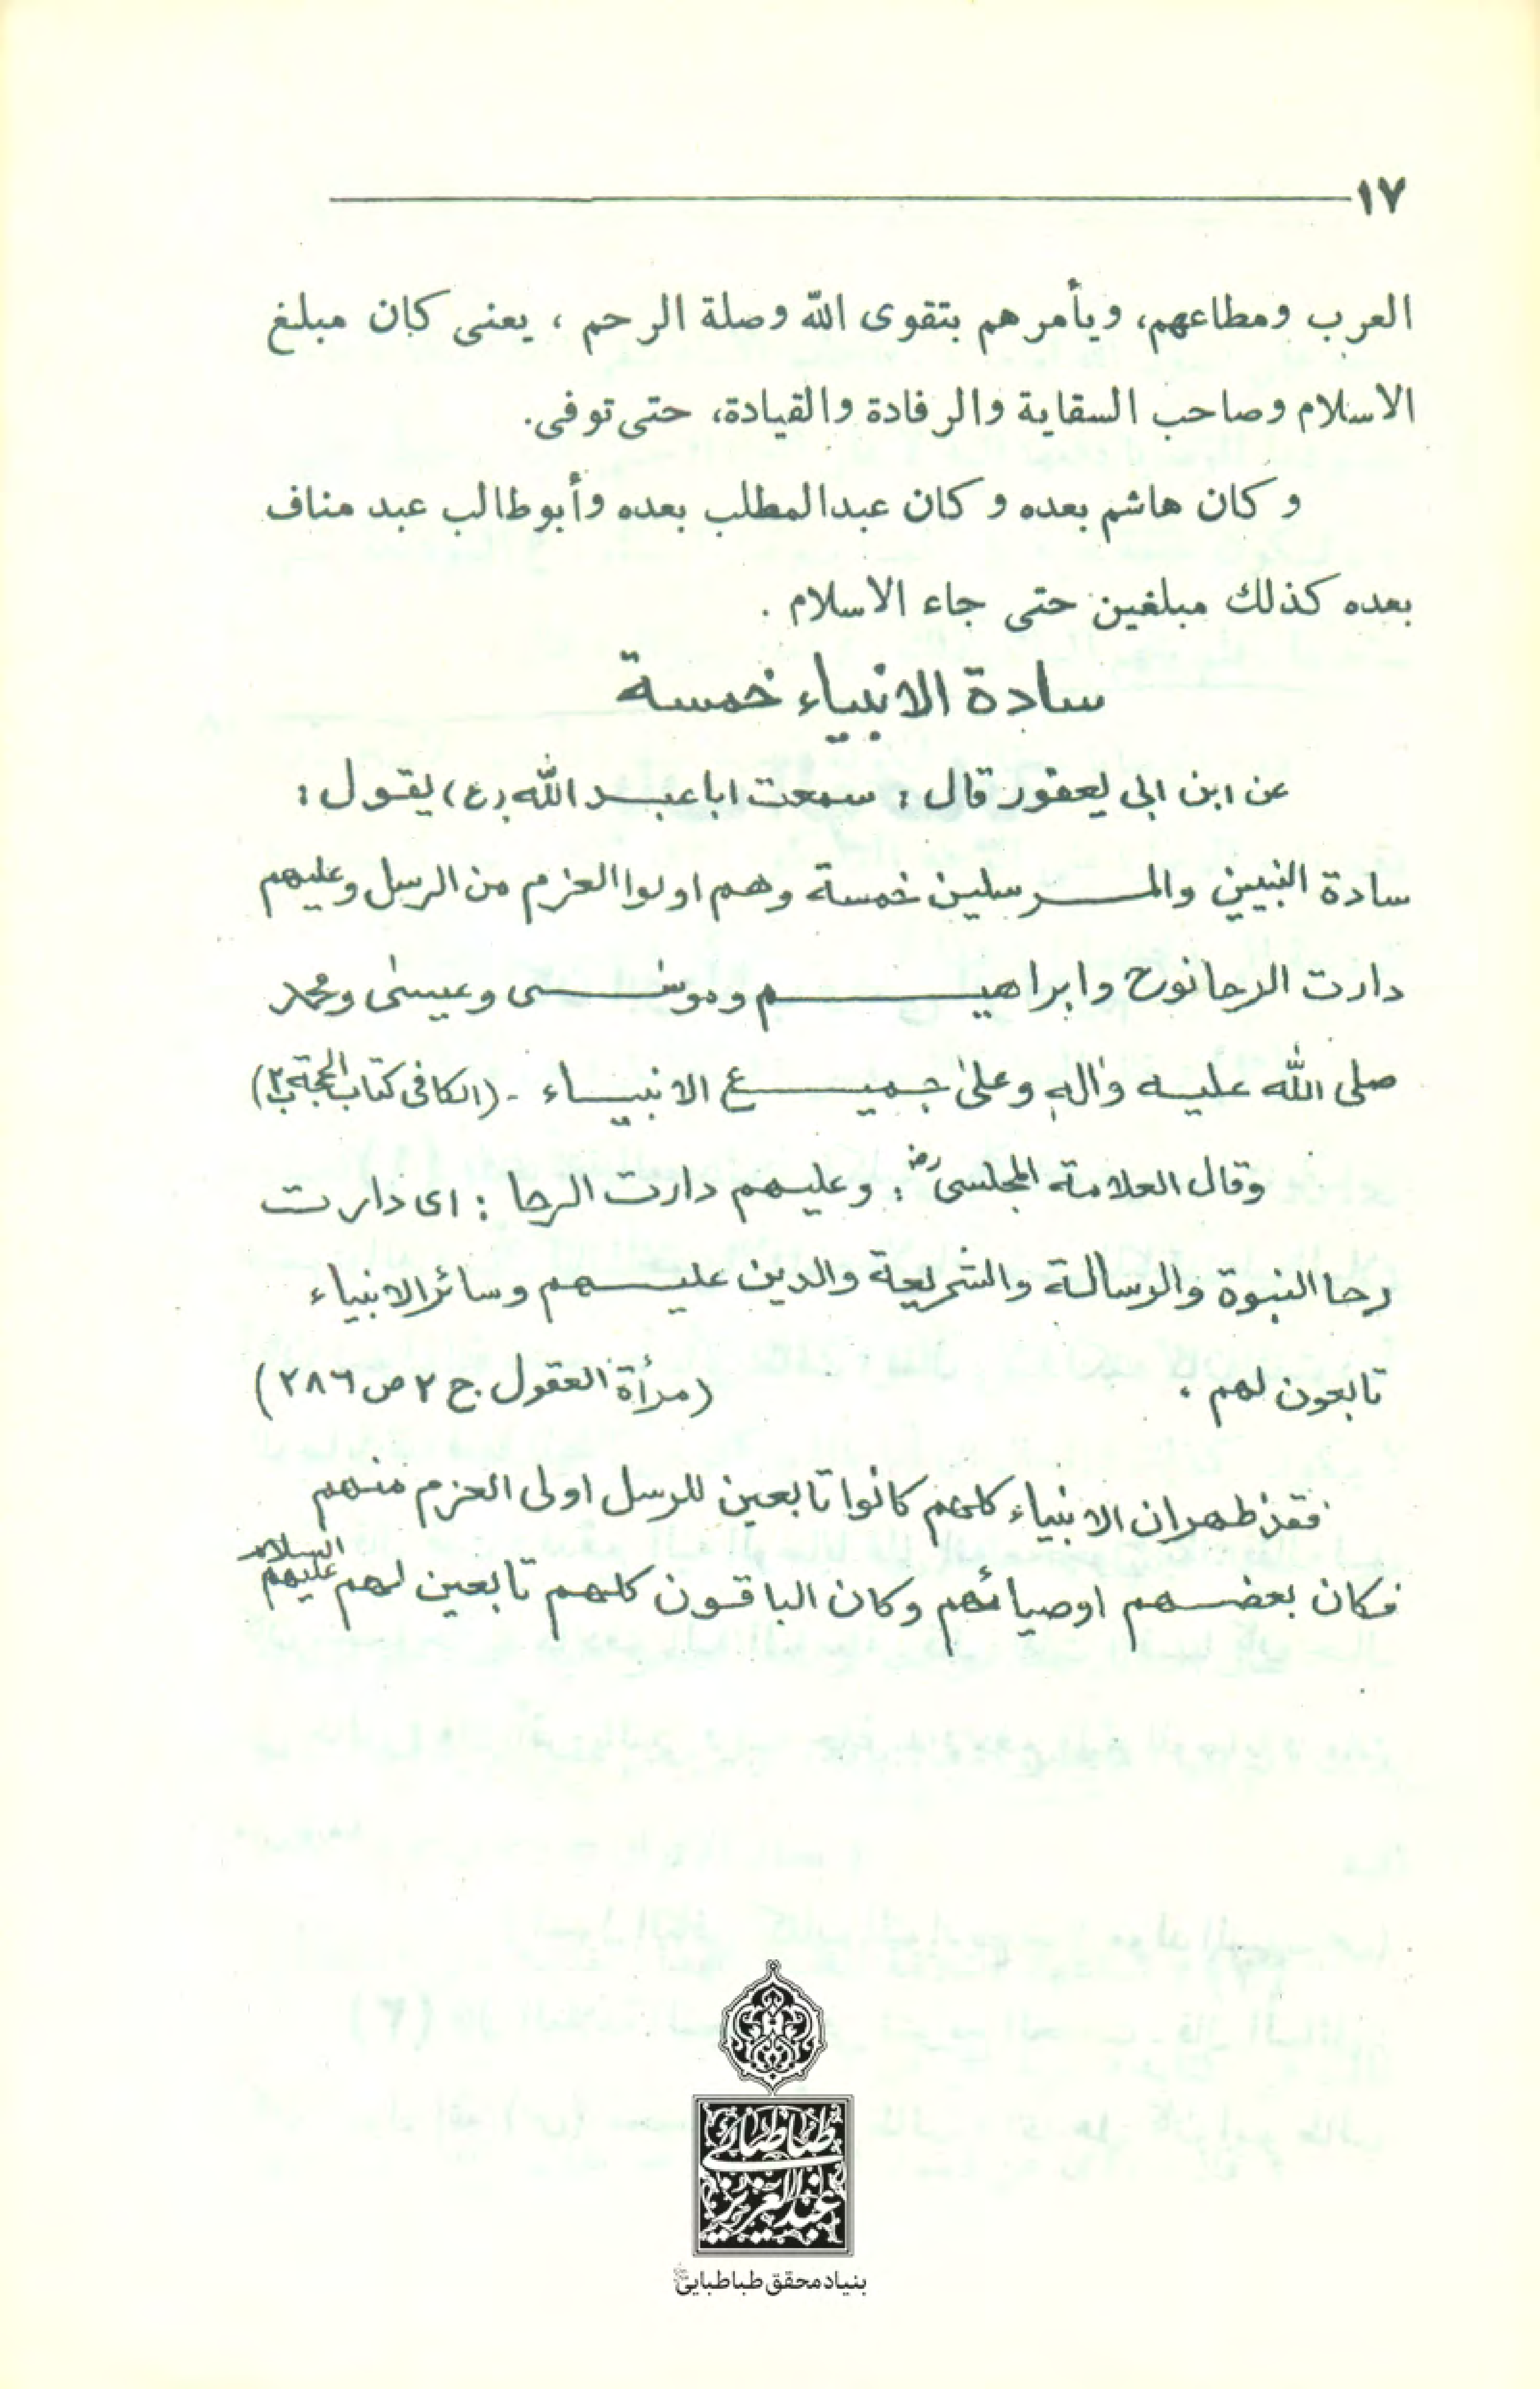 ١٧
العرب ومطاعهم، ويأمرهم بتقوى الله وصلة الرحم ، يعنى كان مبلغ
الاسلام وصاحب السقاية والرفادة والقيادة، حتى توفى.
وكان هاشم بعده وكان عبدالمطلب بعده وأبوطالب عبد مناف
بعده كذلك مبلغين حتى جاء الاسلام .
سادة الانبياء خمسة
عن ابن ابى يعفور قال : سمعت اباعبد الله (ع) يقول :
سادة النبيين والمرسلين خمسة وهم اولوا العزم من الرسل وعليهم
دارت الرحا نوح وابراهيم وموسٰى وعيسٰى ومحمد
صلى الله عليه وآله وعلىٰ جميع الانبياء - (الكافى كتاب الحجة ب٢)
وقال العلامة المجلسى رض: وعليهم دارت الرحا : اى دارت
رحا النبوة والرسالة والشريعة والدين عليهم وسائر الانبياء
تابعون لهم . (مرأة العقول ج ٢ ص ٢٨٦)
فقد ظهر ان الانبياء كلهم كانوا تابعين للرسل اولى العزم منهم
فكان بعضهم اوصيائهم وكان الباقون كلهم تابعين لهم عليهم السلام
طباطبائى
عبدالعزيز
بنیاد محقق طباطبایی